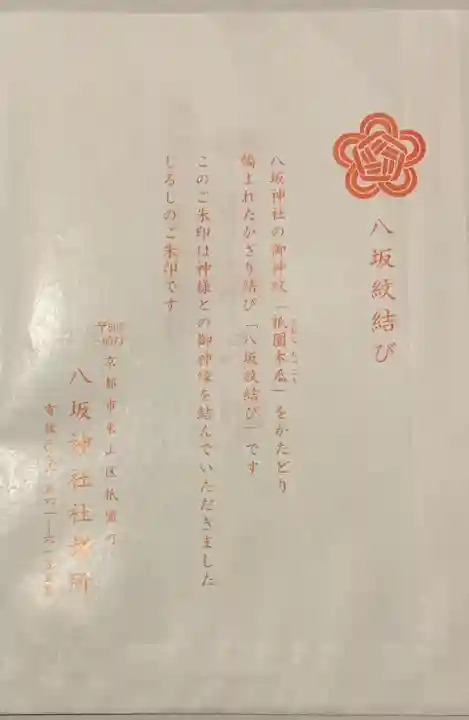 八坂紋結び
八坂神社の御神紋「祇園木瓜」をかたどり
編まれたかざり結び「八坂紋結び」です
このご朱印は神様との御神縁を結んでいただきました
しるしのご朱印です
京都市東山区祇園町
八坂神社社務所
電話